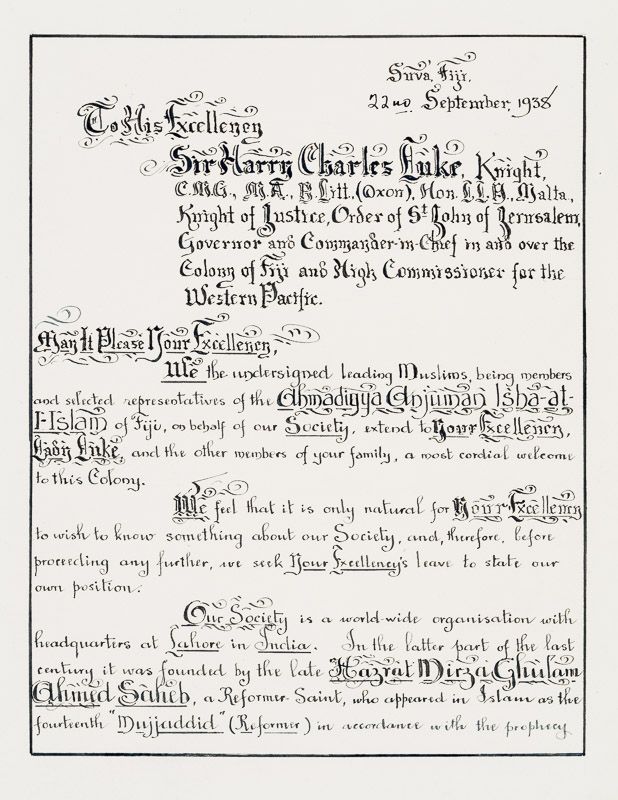 Suva, Fiji.
22nd September, 1938
To His Excellency
Sir Harry Charles Luke, Knight,
C.M.G., M.A., B.Litt., (Oxon), Hon. L.L.D., Malta,
Knight of Justice, Order of St John of Jerusalem,
Governor and Commander-in-Chief in and over the
Colony of Fiji and High Commissioner for the
Western Pacific.
May It Please Your Excellency,
We the undersigned leading Muslims, being members
and selected representatives of the Ahmadiyya Anjuman Isha-at-
I-Islam of Fiji, on behalf of our Society, extend to Your Excellency,
Lady Luke, and the other members of your family, a most cordial welcome
to this Colony.
We feel that it is only natural for Your Excellency
to wish to know something about our Society, and, therefore, before
proceeding any further, we seek Your Excellency's leave to state our
own position.
Our Society is a world-wide organisation with
headquarters at Lahore in India. In the latter part of the last
century it was founded by the late Hazrat Mirza Ghulam
Ahmed Saheb, a Reformer-Saint, who appeared in Islam as the
fourteenth "Mujjaddid" (Reformer) in accordance with the prophecy